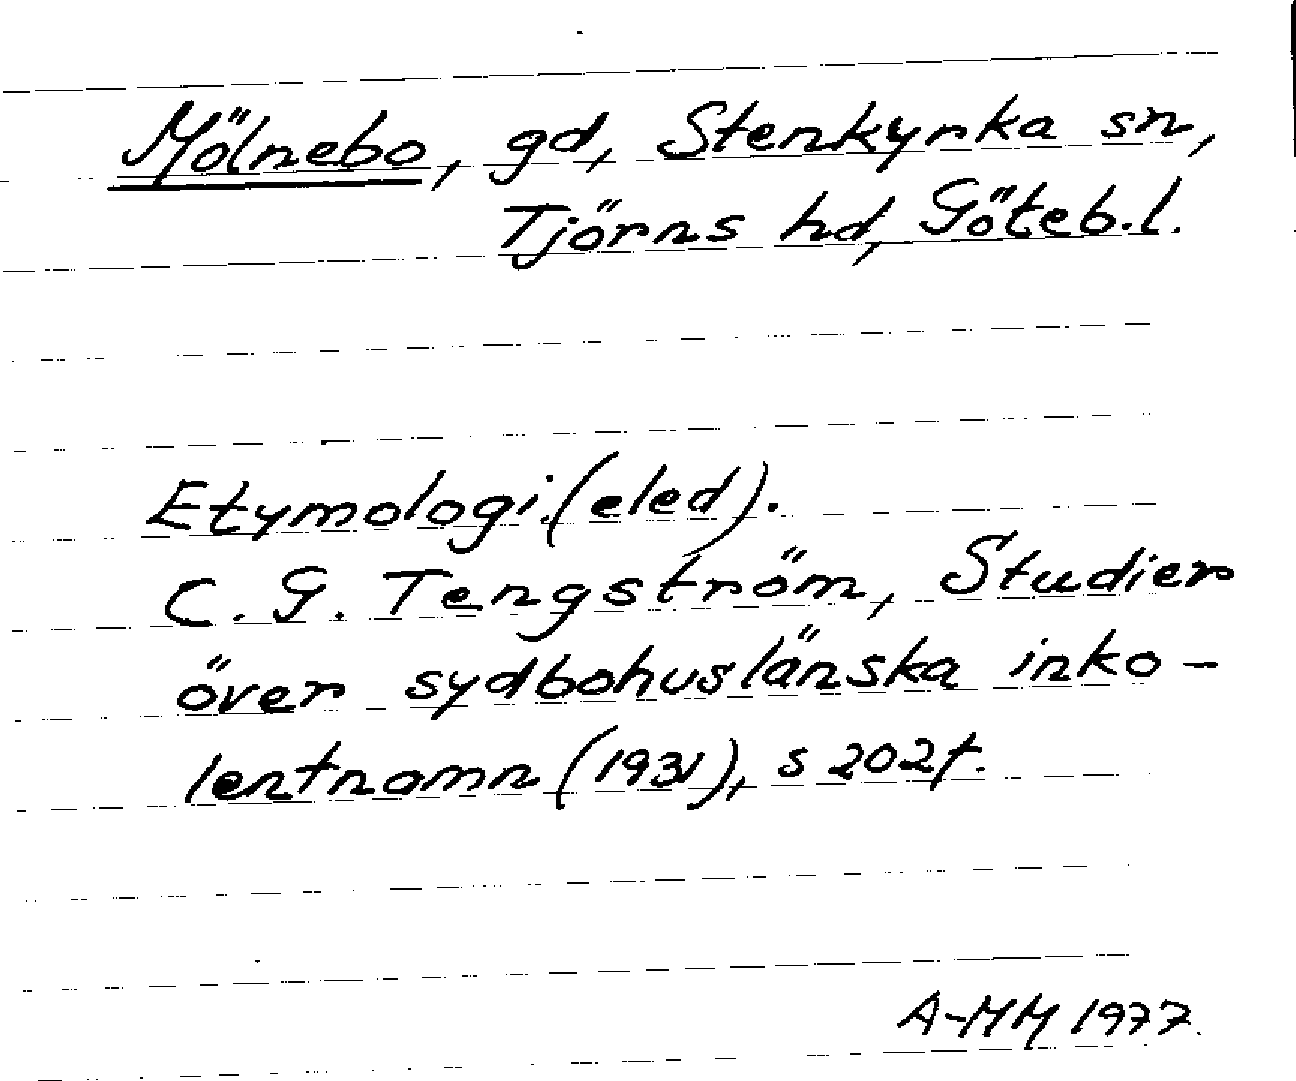 Mölnebo, gd, Stenkyrka sn,
Tjörns hd, Göteb.l.
Etymologi (eled).
C. G. Tengström, Studier
över sydbohuslänska inko-
lentnamn (1931), s 202f.
A-MM 1977.